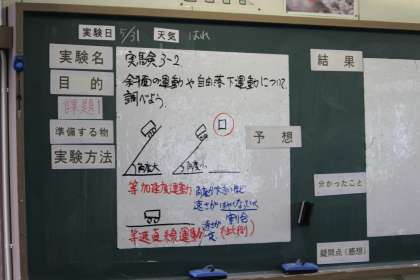 実験日 5/31 天気 はれ
実験名
目的
課題
準備する物
実験方法
実験3-2
斜面の運動や自由落下運動について
調べよう。
角度大
角度小
等加速度運動
等速直線運動
速さが
一定
割合
予想
結果
分かったこと
疑問点(感想)